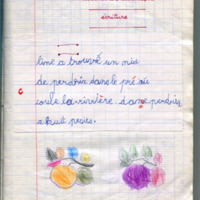 écriture
line a trouvé un nid
de perdrix dans le pré où
coule la rivière. dame perdrix
a huit petits.